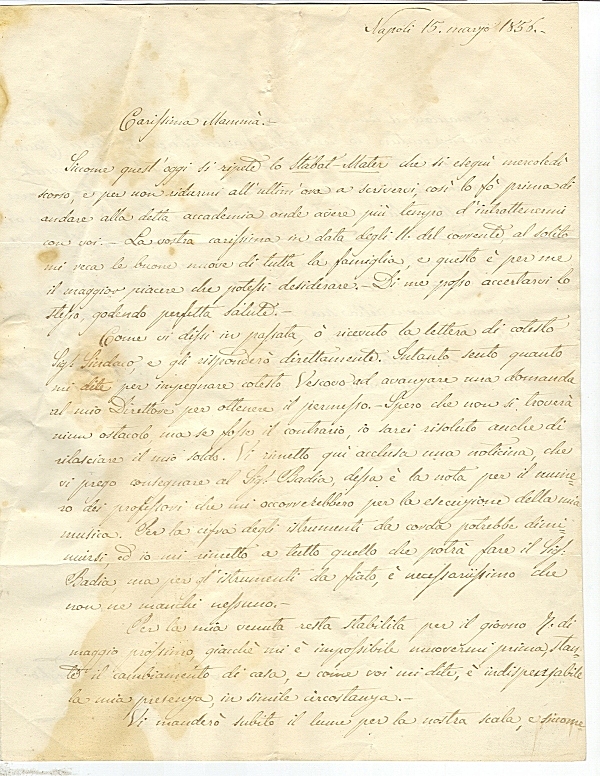 Napoli 15. marzo 1856.-
Carissima Mammà.-
Siccome quest'oggi si ripete lo Stabat-Mater che si eseguì mercoledì
scorso, e per non ridurmi all'ultim'ora a scrivervi, così lo fò prima di
andare alla detta accademia onde avere più tempo d'intrattenermi
con voi.- La vostra carissima in data degli 11. del corrente al solito
mi reca le buone nuove di tutta la famiglia, e questo è per me
il maggior piacere che potessi desiderare.- Di me posso accertarvi lo
stesso, godendo perfetta salute.-
Come vi dissi in passata, ò ricevuto la lettera di cotesto
Sig.r Sindaco, e gli risponderò direttamente. Intanto sento quanto
mi dite per impegnare cotesto Vescovo ad avanzare una domanda
al mio Direttore per ottenere il permesso.- Spero che non si troverà
niun ostacolo, ma se fosse il contrario, io sarei risoluto anche di
rilasciare il mio soldo. Vi rimetto qui acclusa una noticina, che
vi prego consegnare al Sig.r Badia, dessa è la nota per il nume-
ro dei professori che mi occorrerebbero per la esecuzione della mia
musica. Per la cifra degli istrumenti da corda potrebbe dimi
nuirsi, ed io mi rimetto a tutto quello che potrà fare il Sig.r
Badia, ma per gl'istrumenti da fiato, è necessariissimo che
non ne manchi nessuno.-
Per la mia venuta resta stabilita per il giorno 7. di
maggio prossimo giacchè mi è impossibile muovermi prima stan-
te il cambiamento di casa, e come voi mi dite, è indispensabile
la mia presenza, in simile circostanza.-
Vi manderò subito il lume per la nostra scala, e siccome